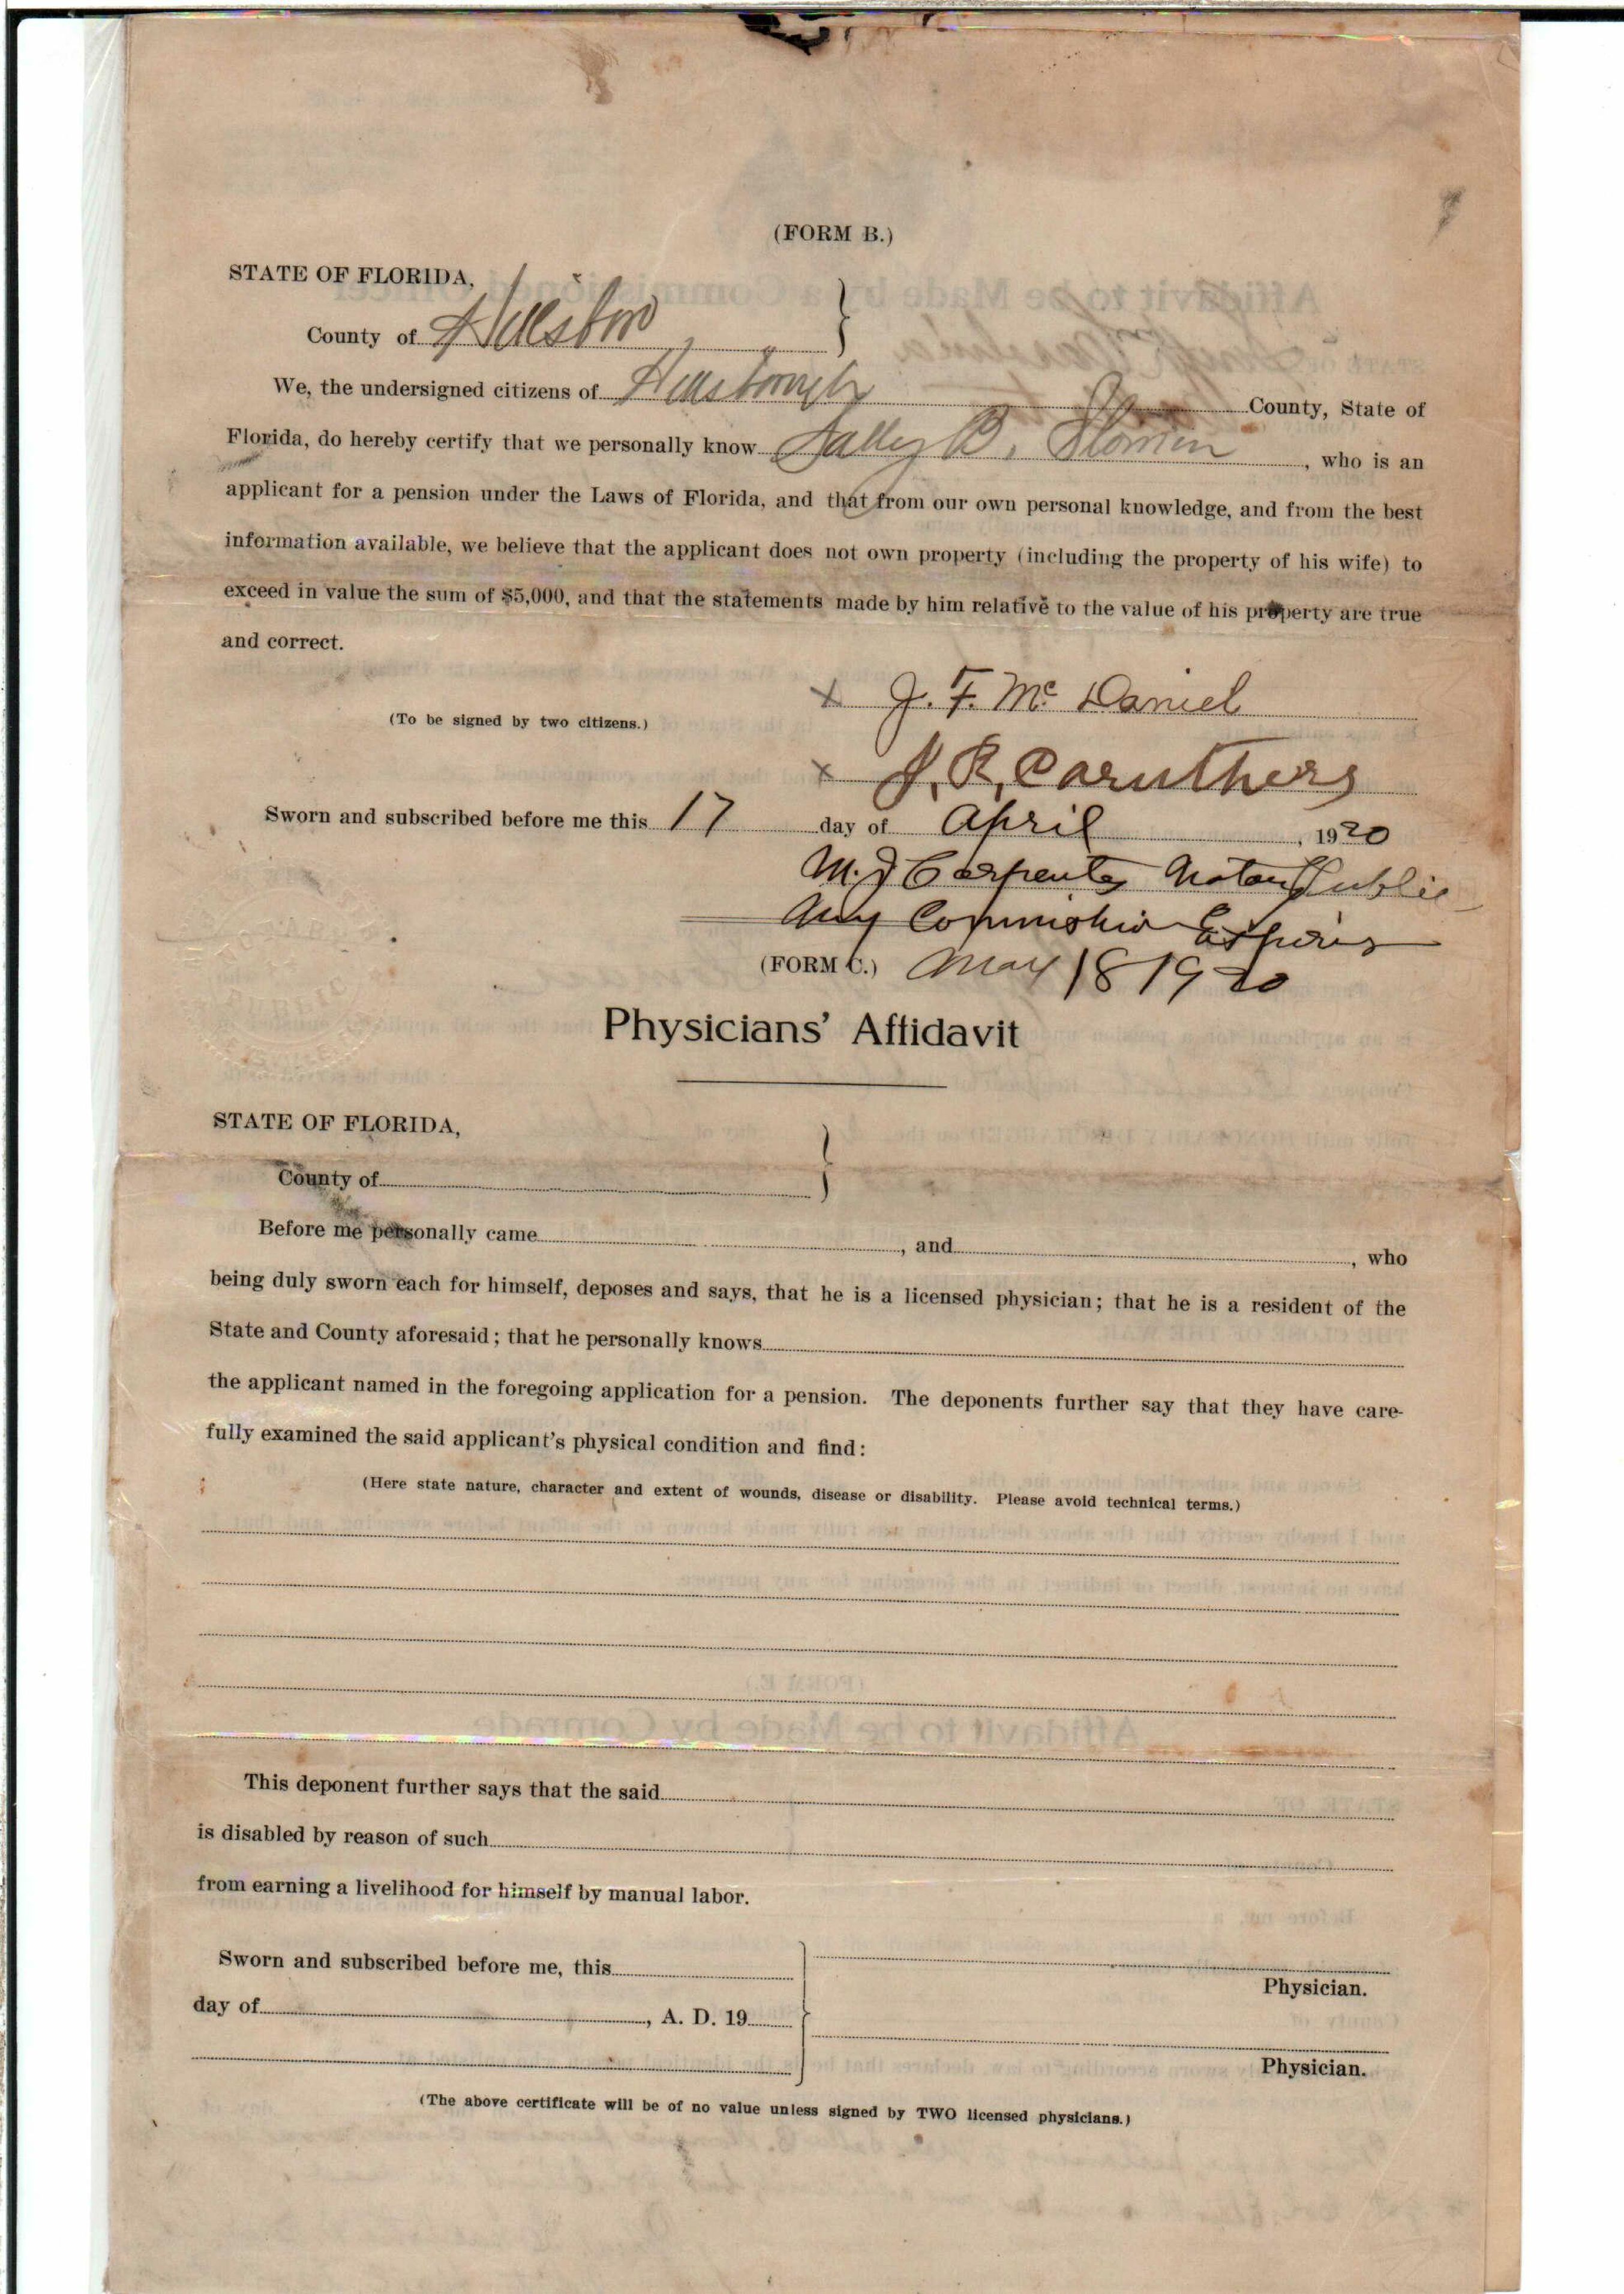 (FORM B.)
STATE OF FLORIDA,
County of Hillsboro
We, the undersigned citizens of Hillsborough County, State of
Florida, do hereby certify that we personally know Sally B. , who is an
applicant for a pension under the Laws of Florida, and that from our own personal knowledge, and from the best
information available, we believe that the applicant does not own property (including the property of his wife) to
exceed in value the sum of $5,000, and that the statements made by him relative to the value of his property are true
and correct.
x J. F. Mc Daniel
(To be signed by two citizens.)
x J. R. Caruthers
Sworn and subscribed before me this 17 day of April, 1920
M. J Carpenter Notary Public
My Commishion Expires
(FORM C.) May 18 1920
Physicians' Affidavit
STATE OF FLORIDA,
County of
Before me personally came , and , who
being duly sworn each for himself, deposes and says, that he is a licensed physician; that he is a resident of the
State and County aforesaid; that he personally knows
the applicant named in the foregoing application for a pension. The deponents further say that they have care-
fully examined the said applicant's physical condition and find:
(Here state nature, character and extent of wounds, disease or disability. Please avoid technical terms.)
This deponent further says that the said
is disabled by reason of such
from earning a livelihood for himself by manual labor.
Sworn and subscribed before me, this
Physician.
day of , A. D. 19
Physician.
(The above certificate will be of no value unless signed by TWO licensed physicians.)